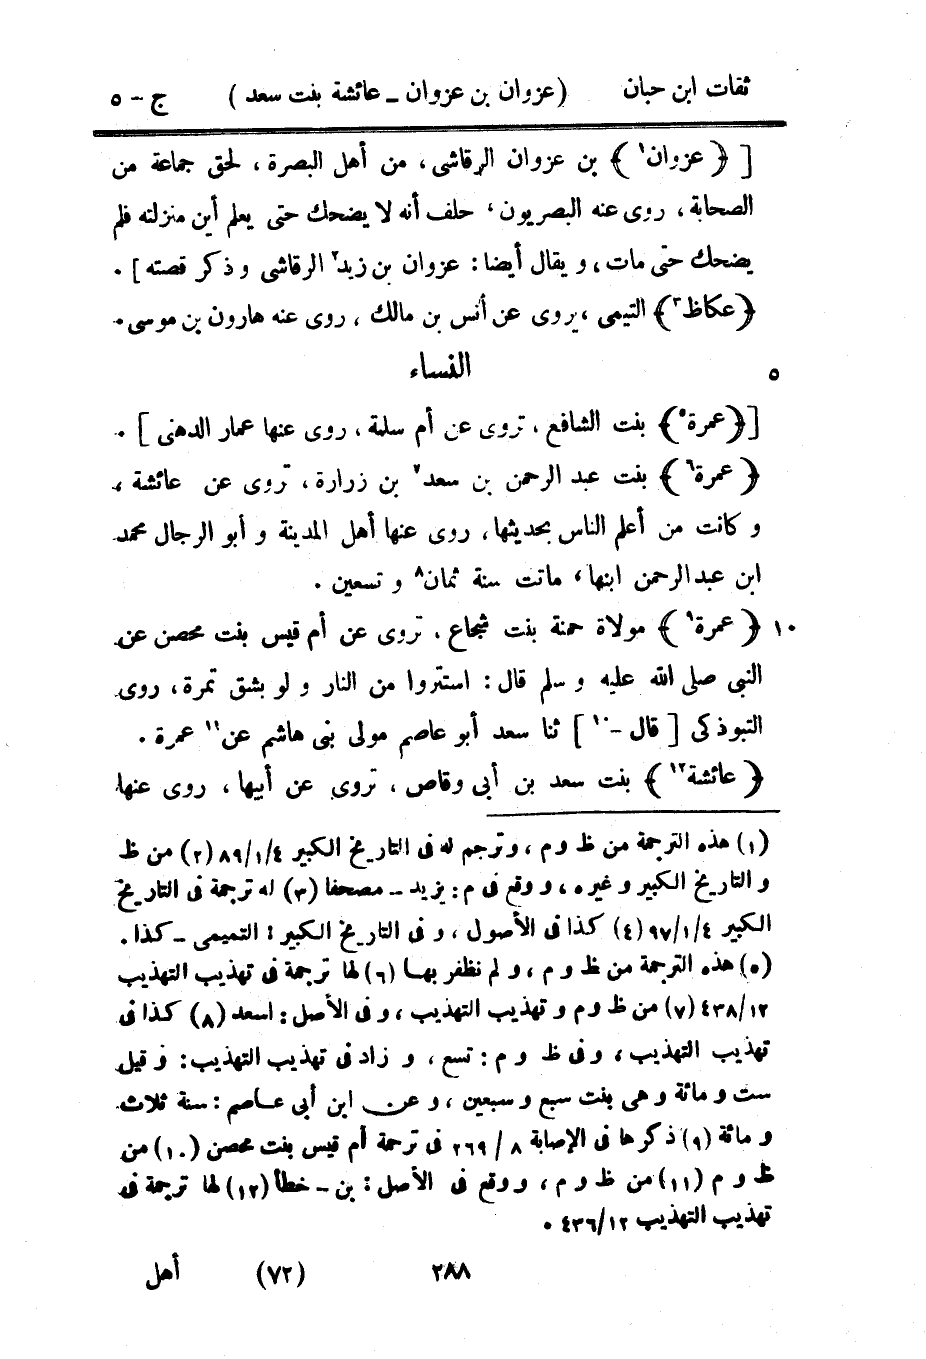 ثقات ابن حبان (عزوان بن عزوان ـ عائشة بنت سعد) ج - ٥
[﴿عزوان١﴾ بن عزوان الرقاشى، من أهل البصرة، لحق جماعة من
الصحابة، روى عنه البصريون، حلف أنه لا يضحك حتى يعلم أين منزلته فلم
يضحك حتى مات، و يقال أيضا: عزوان بن زيد٢ الرقاشى و ذكر قصته].
﴿عكاظ٣﴾ التيمى ، يروى عن أنس بن مالك، روى عنه هارون بن موسى.
النساء ٥
[﴿عمرة٥﴾ بنت الشافع، تروى عن أم سلمة، روى عنها عمار الدهنى].
﴿عمرة٦﴾ بنت عبد الرحمن بن سعد٧ بن زرارة، تروى عن عائشة،
و كانت من أعلم الناس بحديثها، روى عنها أهل المدينة و أبو الرجال محمد
ابن عبد الرحمن ابنها، ماتت سنة ثمان٨ و تسعين.
١٠ ﴿عمرة٩﴾ مولاة حمنة بنت شجاع، تروى عن أم قيس بنت محصن عن
النبى صلى الله عليه و سلم قال: استتروا من النار و لو بشق تمرة، روى
التبوذكى [قال -١٠] ثنا سعد أبو عاصم مولى بنى هاشم عن١١ عمرة.
﴿عائشة١٢﴾ بنت سعد بن أبى وقاص، تروى عن أبيها، روى عنها
(١) هذه الترجمة من ظ و م، و ترجم له فى التاريخ الكبير ٤/١/٨٩ (٢) من ظ
و التاريخ الكبير و غيره، و وقع فى م: يزيد ـ مصحفا (٣) له ترجمة فى التاريخ
الكبير ٤/١/٩٧ (٤) كذا فى الأصول، و فى التاريخ الكبير: التميمى ـ كذا.
(٥) هذه الترجمة من ظ و م، و لم نظفر بها (٦) لها ترجمة فى تهذيب التهذيب
١٢/٤٣٨ (٧) من ظ و م و تهذيب التهذيب، و فى الأصل: اسعد (٨) كذا فى
تهذيب التهذيب، و فى ظ و م: تسع، و زاد فى تهذيب التهذيب: و قيل
ست و مائة و هى بنت سبع و سبعين، و عن ابن أبى عاصم: سنة ثلاث
و مائة (٩) ذكرها فى الإصابة ٨ / ٢٦٩ فى ترجمة أم قيس بنت محصن (١٠) من
ظ و م (١١) من ظ و م، و وقع فى الأصل: بن ـ خطأ (١٢) لها ترجمة فى
تهذيب التهذيب ١٢/٤٣٦.
٢٨٨ (٧٢) أهل